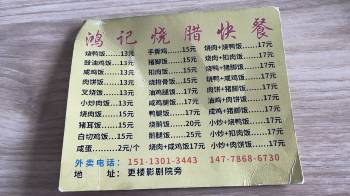 鸿记烧腊快餐
烧鸭饭……13元 手撕鸡……15元 烧肉+烧鸭饭……17元
豉油鸡饭……13元 猪脚饭……15元 烧肉+猪脚饭……17元
咸鸡饭……13元 扣肉饭……15元 烧肉+扣肉饭……17元
肉饼饭……13元 烧排骨饭……15元 烧鸭+猪脚饭……17元
叉烧饭……13元 油鸡腿饭……17元 烧鸭+咸鸡饭……17元
小炒肉饭……13元 咸鸡腿饭……17元 油鸡+肉饼饭……17元
烧肉饭……15元 鸭腿饭……17元 咸鸡+猪脚饭……17元
猪耳饭……15元 烧鹅饭……20元 小炒+烧鸭饭……17元
白切鸡饭……15元 鹅腿饭……25元 小炒+扣肉饭……17元
咸蛋……2元/个 烧肉+咸鸡饭17元 小炒+肉饼饭……17元
外卖电话：151-1301-3443 147-7868-6730
地 址：更楼影剧院旁